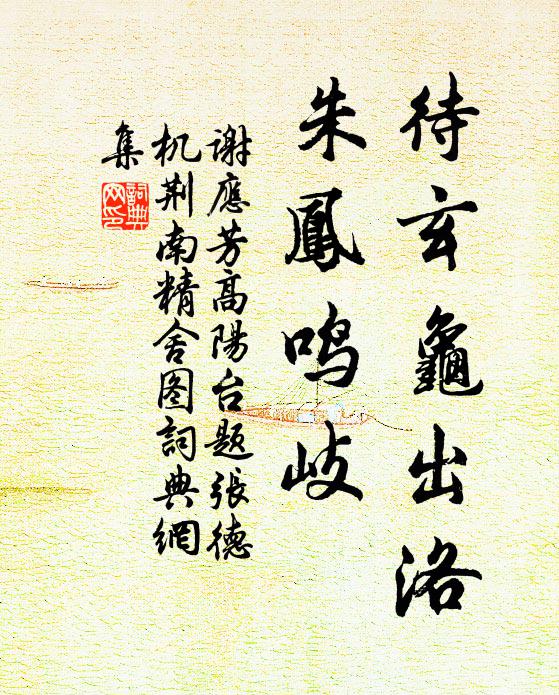 待玄龜出洛
朱鳳鳴岐
謝應芳高陽台題張德
机荆南精舍图詞典網
集
詞典
网印